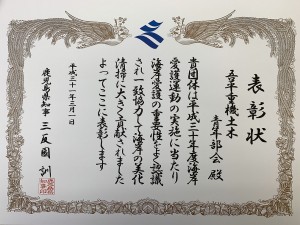 表彰状
吾平重機土木
青年部会 殿
貴団体は平成三十年度海岸
愛護運動の実施に当たり
海岸愛護の重要性をよく認識
され一致協力して海岸の美化
清掃に大きく貢献されました
よってここに表彰します
平成三十一年三月一日
鹿児島県知事 三反園 訓